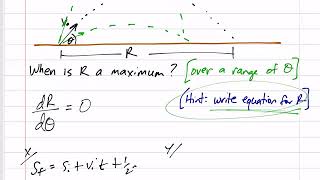 v₀
θ
R
When is R a maximum? [over a range of θ]
dR/dθ = 0
[Hint: write equation for R]
x/ y/
S_f = S_i + v_i t + 1/2